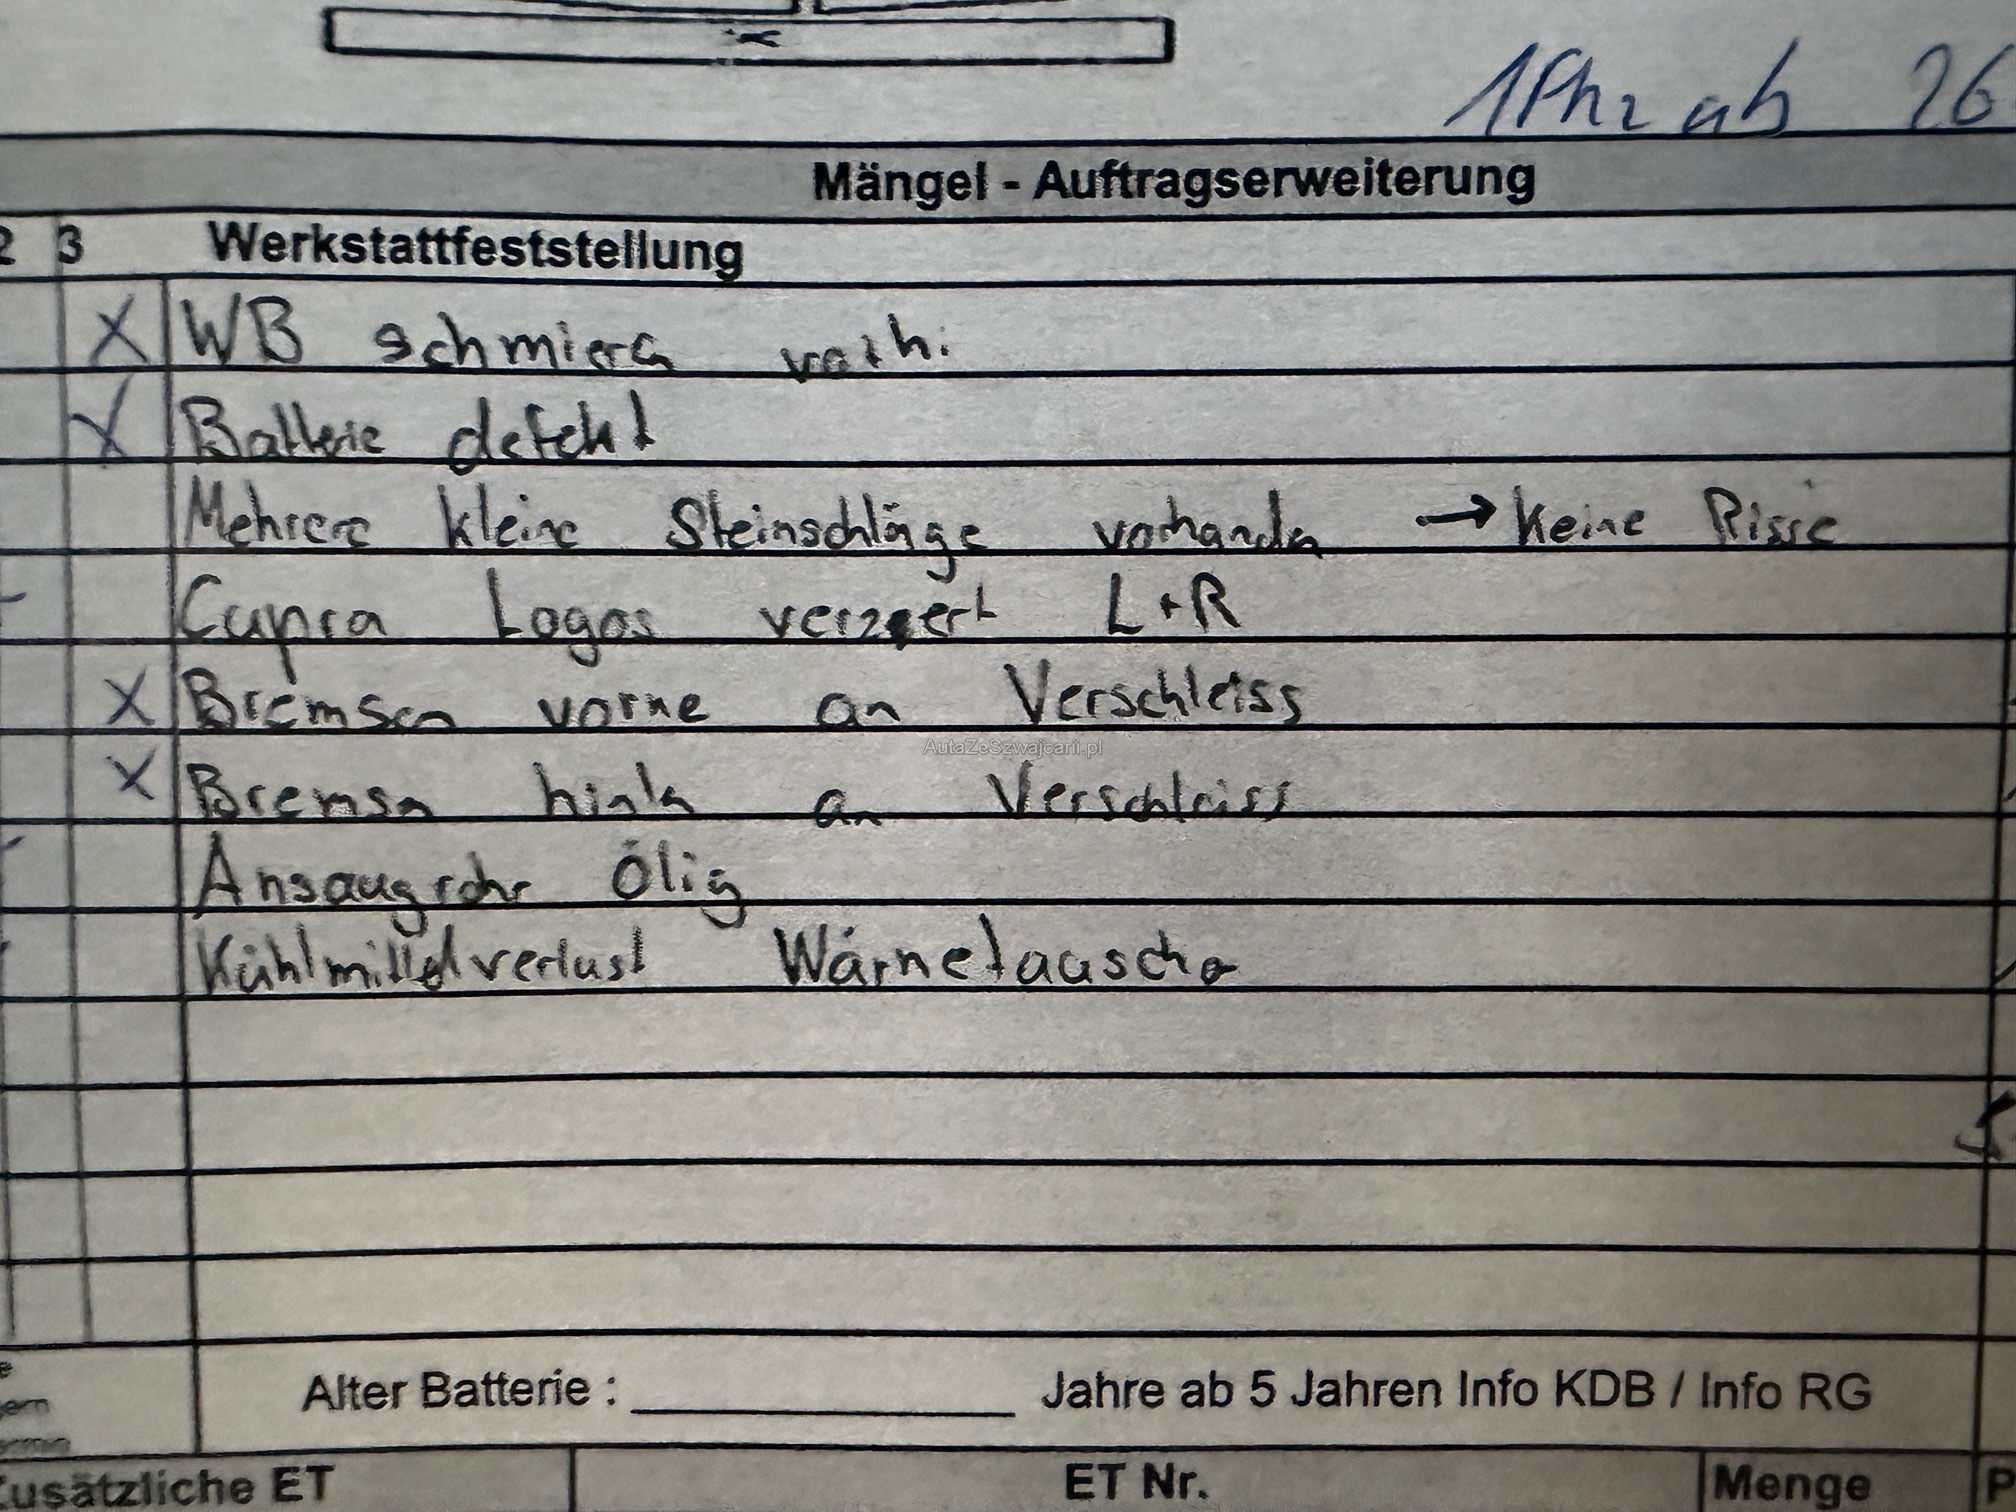 ab 26
Mängel - Auftragserweiterung
2 3 Werkstattfeststellung
X WB schmiern vorh.
X Batterie defekt
Mehrere kleine Steinschläge vorhanden → keine Risse
Cupra Logos L+R
X Bremsen vorne an Verschleiss
X Bremsen hinten an Verschleiss
Ansaugrohr ölig
Kühlmittelverlust Wärmetauscher
AutaZeSzwajcarii.pl
Alter Batterie : Jahre ab 5 Jahren Info KDB / Info RG
Zusätzliche ET ET Nr. Menge P